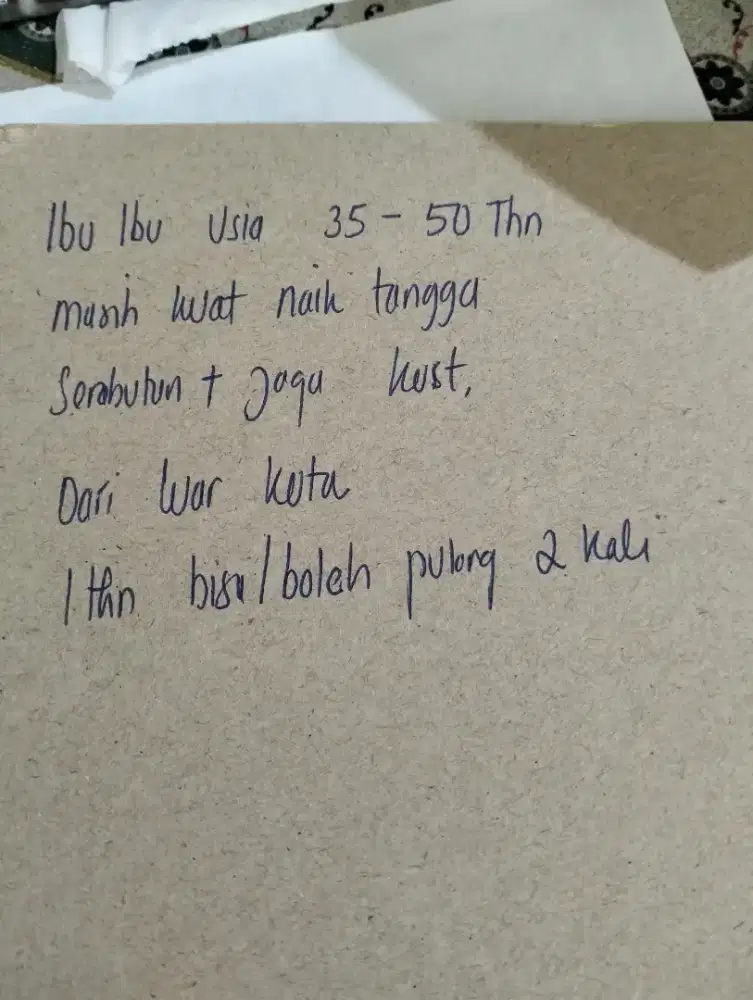 Ibu Ibu Usia 35 - 50 Thn
masih kuat naik tangga
Serabutan + Jaga kost,
Dari luar kota
1 thn bisa/boleh pulang 2 kali